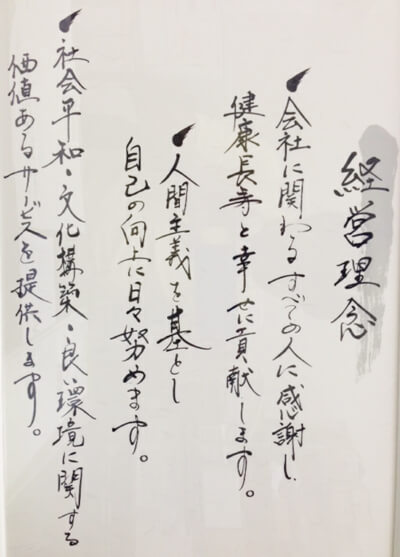 経営理念
会社に関わるすべての人に感謝し
健康長寿と幸せに貢献します。
人間主義を基とし
自己の向上に日々努めます。
社会平和・文化構築・良い環境に関する
価値あるサービスを提供します。